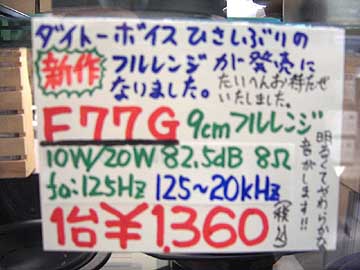 ダイトーボイス ひさしぶりの
新作 フルレンジが発売に
なりました。たいへんお待たせ
いたしました。
F77G 9cmフルレンジ
10W/20W 82.5dB 8Ω
fo:125Hz 125~20kHz
1台¥1,360(税込)
明るくてやわらかな
音がします!!